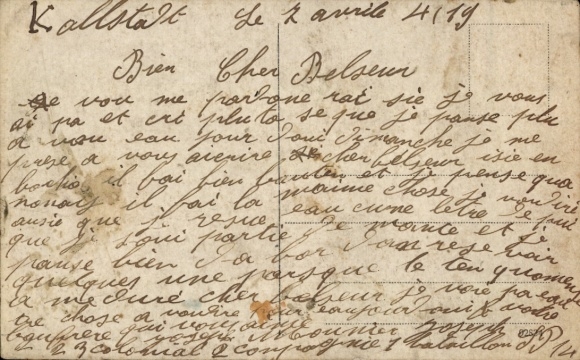 Kallstatt Le 2 avrile 4/19
Bien Cher Belseur
Je vou me pardone rai sie je vous
ai pa et cri plu to se que je panse plu
a vou eau jour d'oui Dimanche je me
prere a vous aicrire cher belseur isie en
bochie il fai bien et je pense qua
nonais il fai la maime chose je voudrai
ausie que j resue eau cune letre de pui
que je sui partie de mante et je
panse bien d'a bor d'an rese voir
quelques une parsque le ten
a me dure cher belseur je voie pa eau
tre chose a voudire eaujour oui votre
beaufrere qui vous aime
23 colonial 2 compagnie 1 bataillon S P